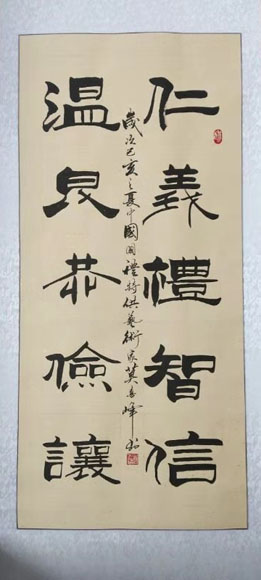 仁義禮智信
溫良恭儉讓
歲次己亥之夏中國國禮特供藝術家莫春峰書